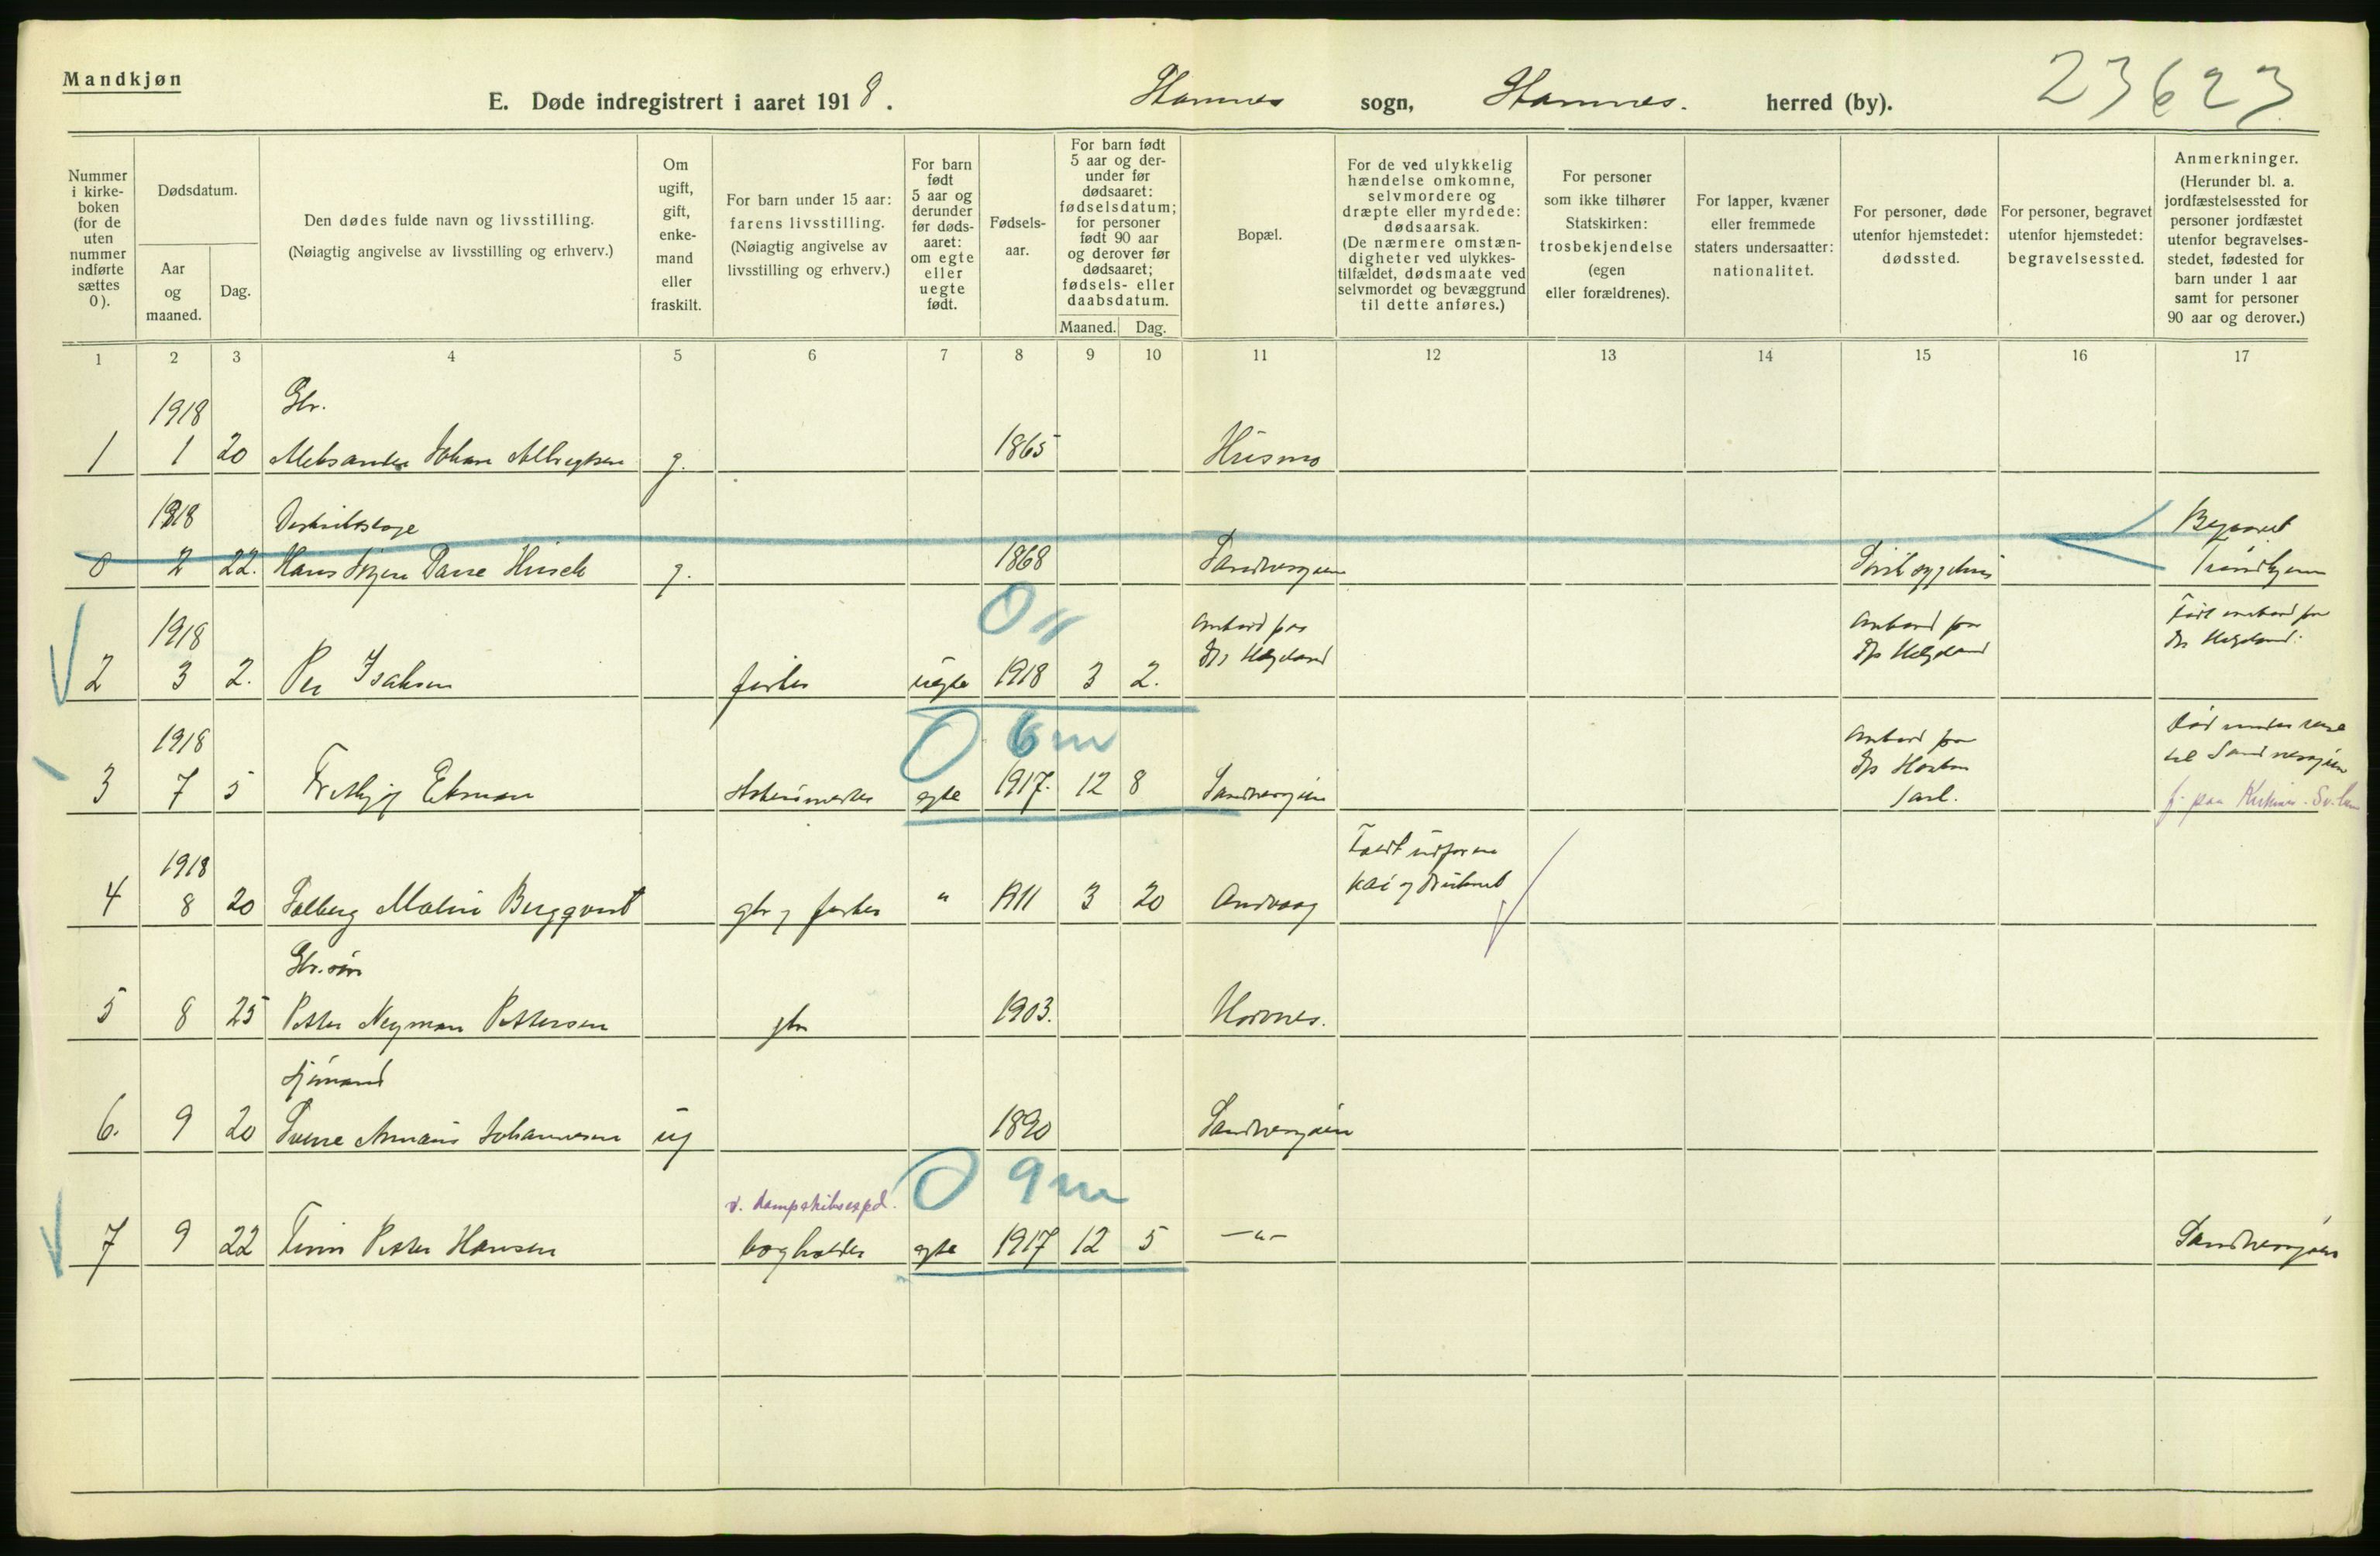 Mandkjøn
E. Døde indregistrert i aaret 1918. Stamnes sogn, Stamnes. herred (by).
23623
Nummer i kirke-boken (for de uten nummer indførte sættes 0).
Dødsdatum.
Aar og maaned.
Dag.
Den dødes fulde navn og livsstilling.
(Nøiagtig angivelse av livsstilling og erhverv.)
Om ugift, gift, enke-mand eller fraskilt.
For barn under 15 aar: farens livsstilling.
(Nøiagtig angivelse av livsstilling og erhverv.)
For barn født 5 aar og derunder før døds-aaret: om egte eller uegte født.
Fødsels-aar.
For barn født 5 aar og der-under før dødsaaret: fødselsdatum; for personer født 90 aar og derover før dødsaaret; fødsels- eller daabsdatum.
Maaned. Dag.
Bopæl.
For de ved ulykkelig hændelse omkomne, selvmordere og dræpte eller myrdede: dødsaarsak.
(De nærmere omstæn-digheter ved ulykkes-tilfældet, dødsmaate ved selvmordet og bevæggrund til dette anføres.)
For personer som ikke tilhører Statskirken: trosbekjendelse (egen eller forældrenes).
For lapper, kvæner eller fremmede staters undersaatter: nationalitet.
For personer, døde utenfor hjemstedet: dødssted.
For personer, begravet utenfor hjemstedet: begravelsessted.
Anmerkninger.
(Herunder bl. a. jordfæstelsessted for personer jordfæstet utenfor begravelses-stedet, fødested for barn under 1 aar samt for personer 90 aar og derover.)
1 2 3 4 5 6 7 8 9 10 11 12 13 14 15 16 17
1918 Gbr.
1 1 20 Aleksander Johan Albrigtsen g. 1865 Husmo
1918 Begravet
0 2 22. Hans g. 1868 Sandnessjøen Trondhjem
0 11
1918 Ombord paa Ombord paa Født ombord paa
D/s Helgeland D/s Helgeland D/s Helgeland.
2 3 2. Per Isaksen fisker uegte 1918 3 2.
0 6 m
1918 Ombord paa Død under reise
D/s Haakon til Sandnessjøen
3 7 5 Fritjof Ekman egte 1917. 12 8 Sandnessjøen Jarl.
1918 Faldt udfor en
kai og druknet
4 8 20 Solberg Bergqvist gbr og fisker " 1911 3 20
Gbr.søn
5 8 25 Petter Nyman Pettersen gbr 1903.
Sjømand
6. 9 20 Johannesen ug 1890 Sandnessjøen
0 9 m
v. dampskibsexped.
7 9 22 Finn Petter Hansen bogholder egte 1917 12 5 —"— Sandnessjøen